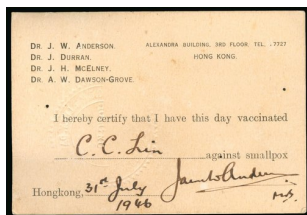 DR. J. W. ANDERSON.
DR. J. DURRAN.
DR. J. H. McELNEY.
DR. A. W. DAWSON-GROVE.
ALEXANDRA BUILDING, 3RD FLOOR, TEL. 27727
HONG KONG.
I hereby certify that I have this day vaccinated
C. C. Lin
against smallpox
Hongkong, 31st July
1946